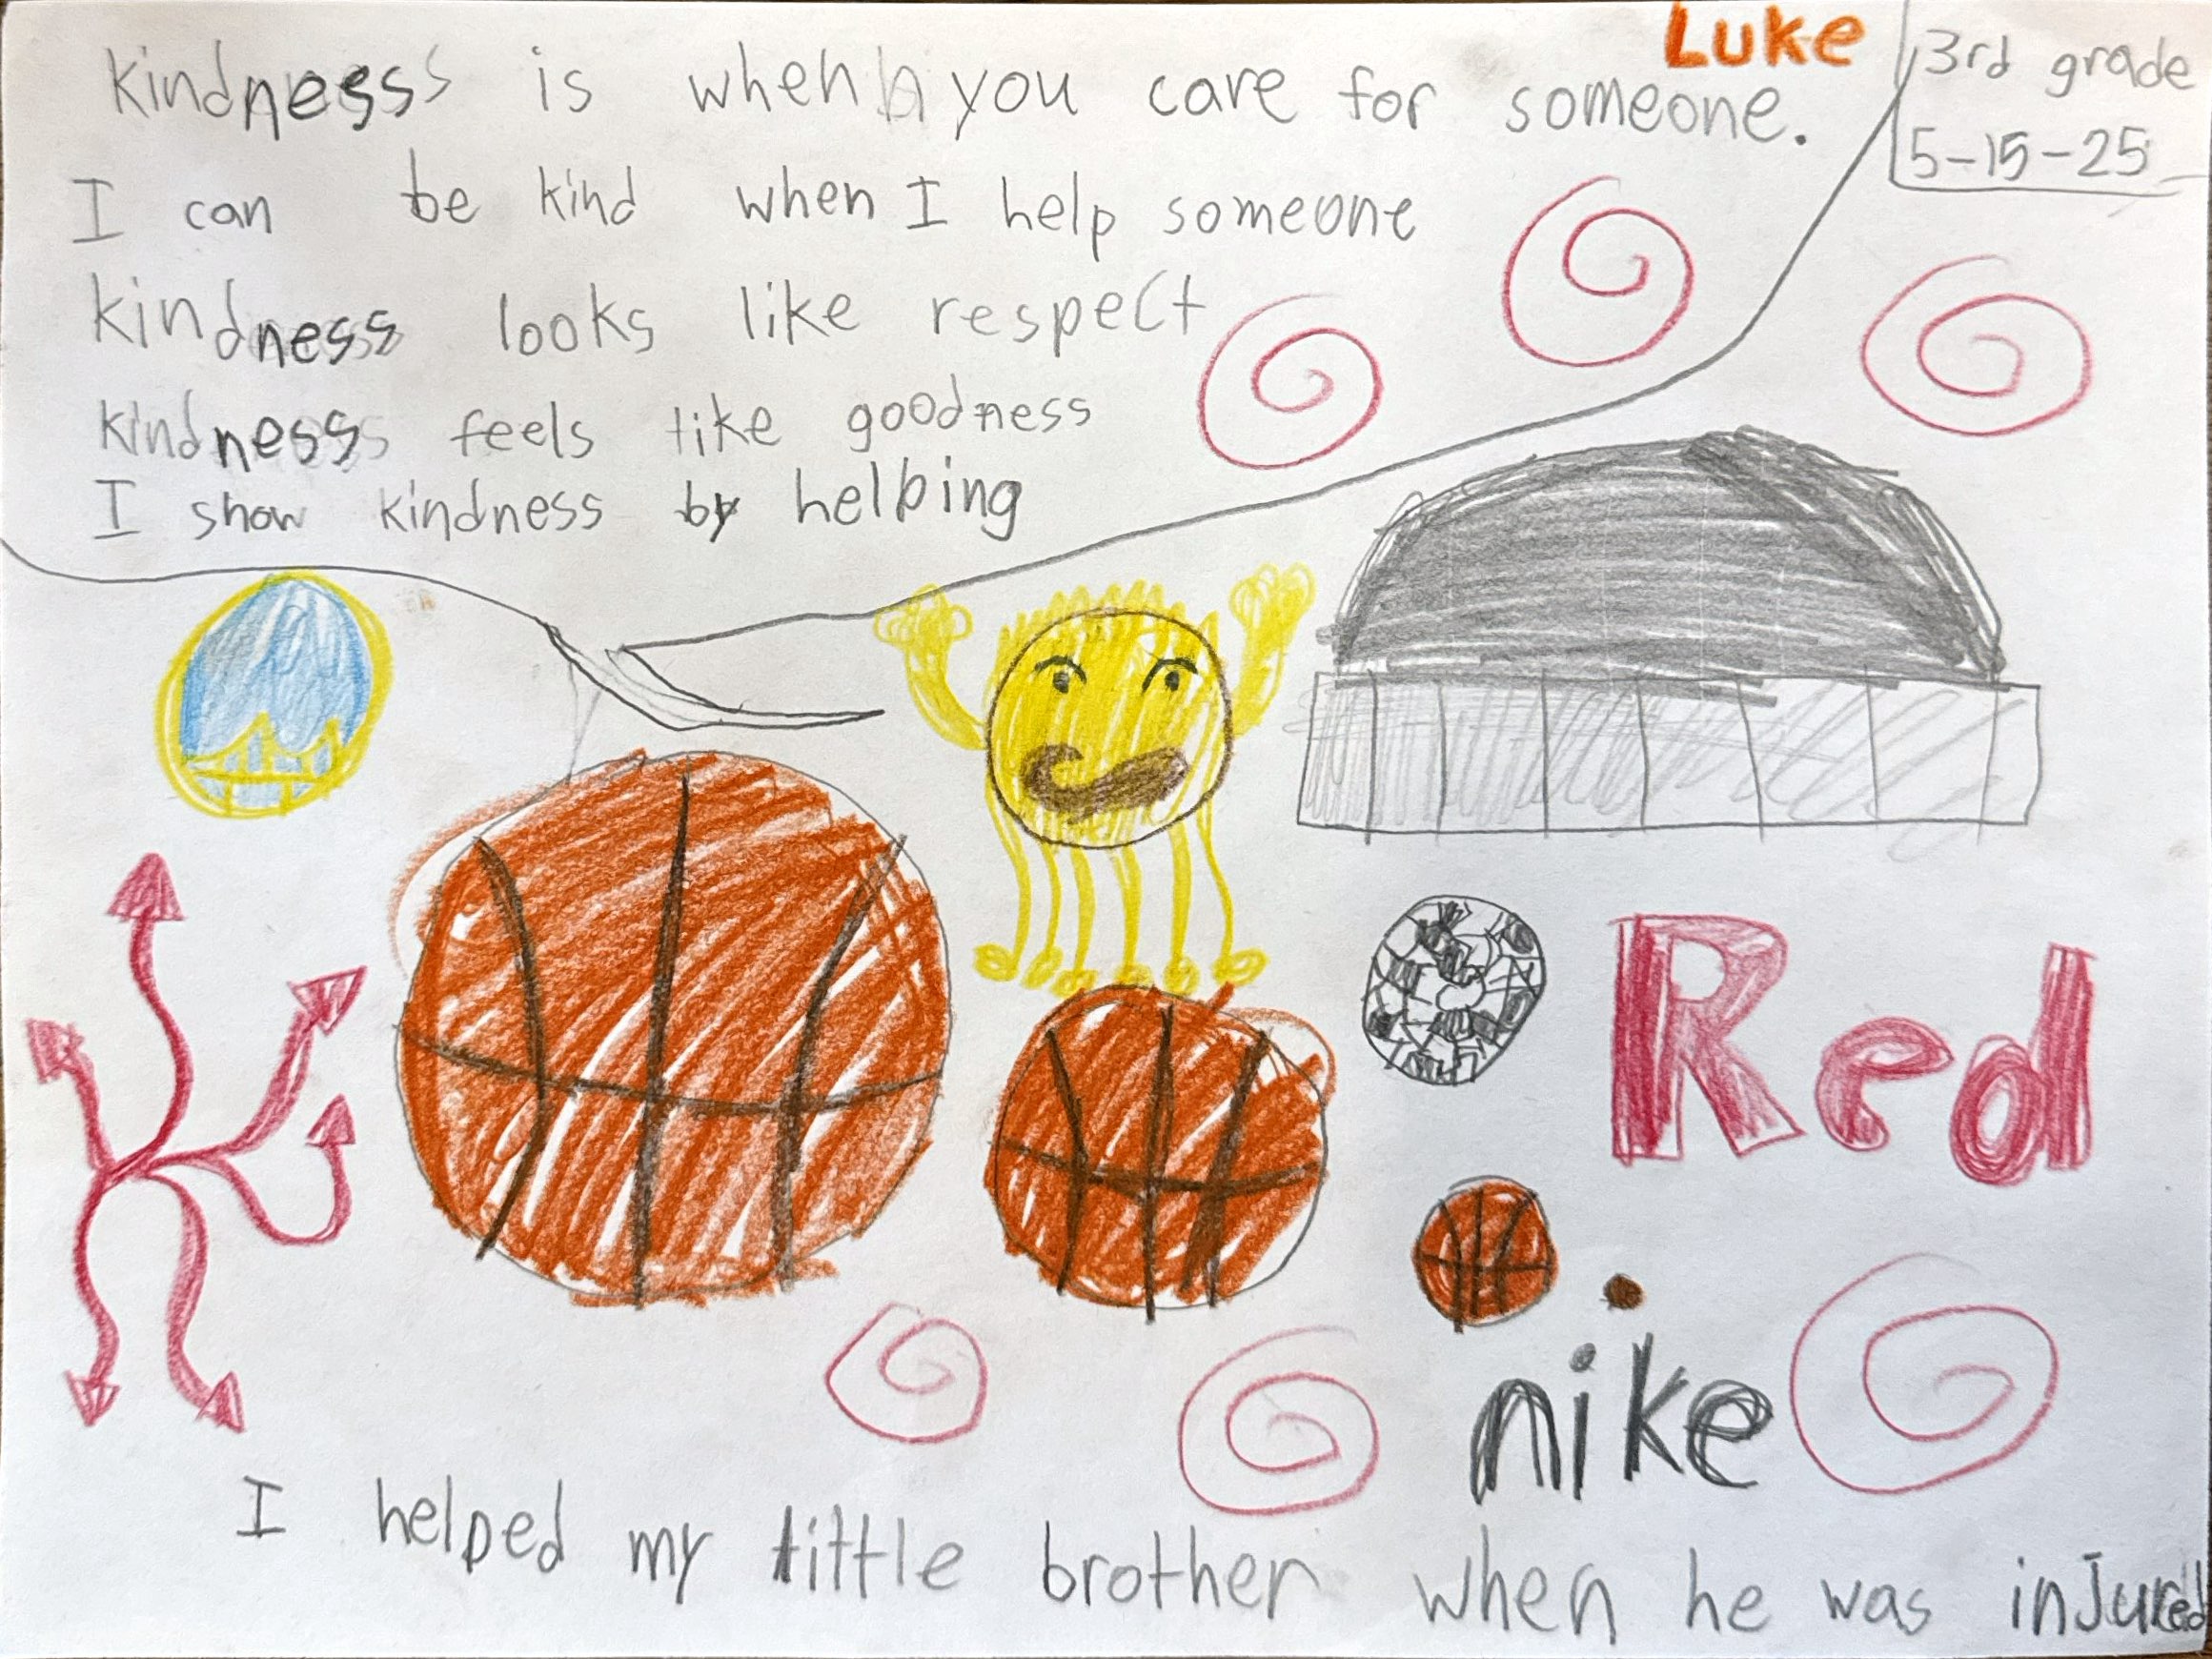 Luke
3rd grade
5-15-25
kindness is when you care for someone.
I can be kind when I help someone
kindness looks like respect
kindness feels like goodness
I show kindness by helbing
Red
nike
I helped my little brother when he was injured